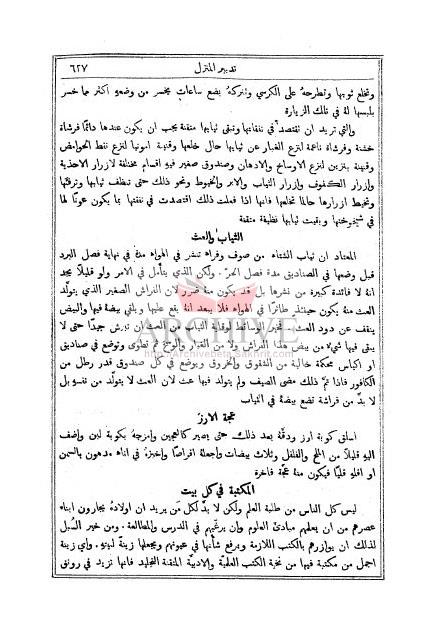 تدبير المنزل ٦٢٧
وتخلع ثوبها وتطرحهُ على الكرسي وتتركهُ بضع ساعات يخسر من وضعهِ اكثر مما خسر
بلبسها لهُ في تلك الزيارة
والتي تريد ان تقتصد في نفقاتها وتبقى ثيابها متقنة يجب ان يكون عندها دائمًا فرشاة
خشنة وفرشاة ناعمة لنزع الغبار عن ثيابها حال خلعها وقنينة امونيا لنزع نقط الحوامض
وقنينة بنزين لنزع الاوساخ والادهان وصندوق صغير فيهِ اقسام مختلفة لازرار الاحذية
وازرار الكفوف وازرار الثياب والابر والخيوط ونحو ذلك حتى تنظف ثيابها وترفئها
وتخيط ازرارها حالما تخلعها فانها اذا فعلت ذلك اقتصدت في نفقتها بما يكون عونًا لها
في شيخوختها وبقيت ثيابها نظيفة متقنة
الثياب والعث
المعتاد ان ثياب الشتاء من صوف وفراء تنشر في الهواء مدة في نهاية فصل البرد
قبل وضعها في الصناديق مدة فصل الحرّ. ولكن الذي يتأمل في الامر ولو قليلًا يجد
انهُ لا فائدة كبيرة من نشرها بل قد يكون منهُ ضرر لان الفراش الصغير الذي يتولّد
العث منهُ يكون حينئذٍ طائرًا في الهواء فلا يبعد انهُ يقع عليها ويلقي بيضهُ فيها والبيض
ينقف عن دود العث. فخير الوسائط لوقاية الثياب من العث ان تفرش جيدًا حتى لا
يبقى فيها شيء من بيض هذا الفراش ولا من الغبار والوسخ ثم تطوى وتوضع في صناديق
او اكياس محكمة خالية من الشقوق والخروق ويوضع في كل صندوق قدر رطل من
الكافور فاذا تمّ ذلك مضى الصيف ولم يتولد فيها عث لان العث لا يتولد من نفسهِ بل
لا بدّ من فراشة تضع بيضهُ في الثياب
عجة الارز
اسلق كوبة ارز ودقهُ بعد ذلك حتى يصير كالعجين وامزجهُ بكوبة لبن واضف
اليهِ قليلًا من الملح والفلفل وثلاث بيضات واجعلهُ اقراصًا واخبزهُ في اناء مدهون بالسمن
او اقلهِ قليًا فيكون منهُ عجّة فاخرة
المكتبة في كل بيت
ليس كل الناس من طلبة العلم ولكن لا بدّ لكل من يريد ان اولاده يجارون ابناء
عصرهم من ان يعلمهم مبادئ العلوم وان يرغبهم في الدرس والمطالعة. ومن خير السُبل
لذلك ان يوازرهم بالكتب اللازمة ويرفع شأنها في عيونهم ويجعلها زينة لبيتهِ. واي زينة
اجمل من مكتبة فيها من نخبة الكتب العلمية والادبية المتقنة التجليد فانها تزيد في رونق
ARCHIVE
http://Archivebeta.Sakhrit.com